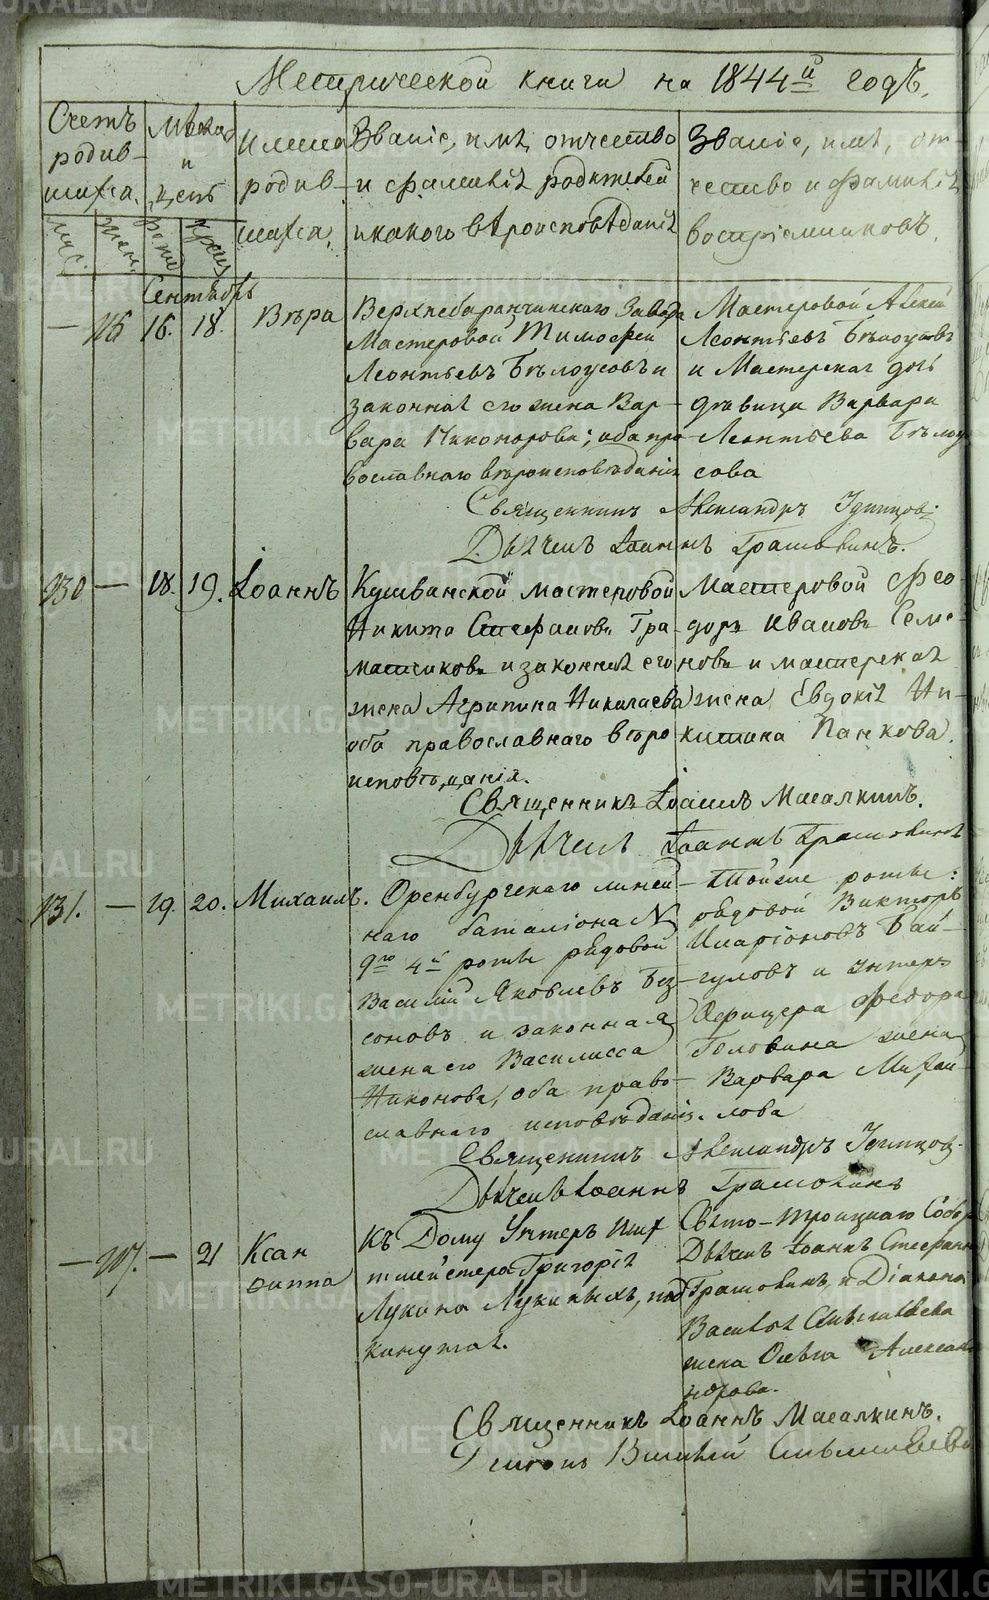 Метрической книги на 1844й годъ.
Счетъ родив-шихся.
Мѣсяцъ и день
Имена родив-шихся.
Званіе, имя, отчество и фамилія родителей и какого вѣроисповѣданія
Званіе, имя, от-чество и фамилія воспріемниковъ.
Муж. Жен. Рожд. Крещ.
Сентябрь
— 16. 18. Вѣра
Верхнебаранчинскаго завода
Мастеровой Тимофей
Леонтьевъ Бѣлоусовъ и
законная его жена Вар-
вара Никонорова; оба пра-
вославнаго вѣроисповѣданія
Мастеровой Алексѣй
Леонтьевъ Бѣлоусовъ
и Мастерская дочь
дѣвица Варвара
Леонтьева Бѣлоу
сова
Священникъ Александръ
Дьячекъ Іоаннъ Грамовинъ.
130 — 18. 19. Іоаннъ
Кушвинской мастеровой
Никита Стефановъ Гра-
матчиковъ и законная его
жена Агрипина Николаева
оба православнаго вѣро
исповѣданія.
Мастеровой Фео-
доръ Ивановъ Семе-
новъ и мастерская
жена Евдокія Ни-
китина Панкова.
Священникъ Іоаннъ Масалкинъ.
Дьячекъ Іоаннъ Грамовинъ
131. — 19. 20. Михаилъ.
Оренбургскаго линей-
наго баталіона N
9го 4й роты рядовой
Василій Яковлевъ Без-
соновъ и законная
жена его Василисса
Никонова, оба право-
славнаго исповѣданія.
Тойже роты:
рядовой Викторъ
Иларіоновъ Бай-
гуловъ и унтеръ
Офицера Федора
Головина жена
Варвара Михай-
лова
Священникъ Александръ
Дьячекъ Іоаннъ Грамовинъ
— 117. — 21 Ксан
фиппа
Къ Дому Унтеръ Шиф
тмейстера Григорія
Лукина Лукиныхъ, под
кинутая.
Свято-Троицкаго Собора
Дьячекъ Іоаннъ Стефановъ
Грамовинъ и Діакона
Василія
жена Ольга Алексан
дрова.
Священникъ Іоаннъ Масалкинъ.
Діаконъ Василій
METRIKI.GASO-URAL.RU